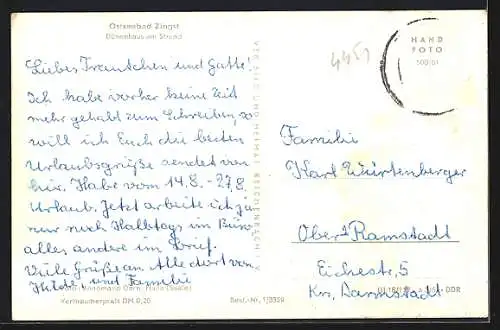 Ostseebad Zingst
Dünenhaus am Strand
Liebes Frauchen und Gatte!
Ich habe vorher keine Zeit
mehr gehabt zum Schreiben, so
will ich Euch die besten
Urlaubsgrüße senden von
hier. Habe vom 14.8. - 27.8.
Urlaub. Jetzt arbeite ich ja
nur noch Halbtags im Büro
alles andere im Brief.
Viele Grüße an Alle dort von
und Familie
Verbraucherpreis DM 0,20
Best.-Nr. 1/3329
VERLAG BILD UND HEIMAT REICHENBACH I. V.
HAND
FOTO
4451
Familie
Karl Würtenberger
Ober Ramstadt
Eichestr. 5
Krs. Darmstadt
DDR